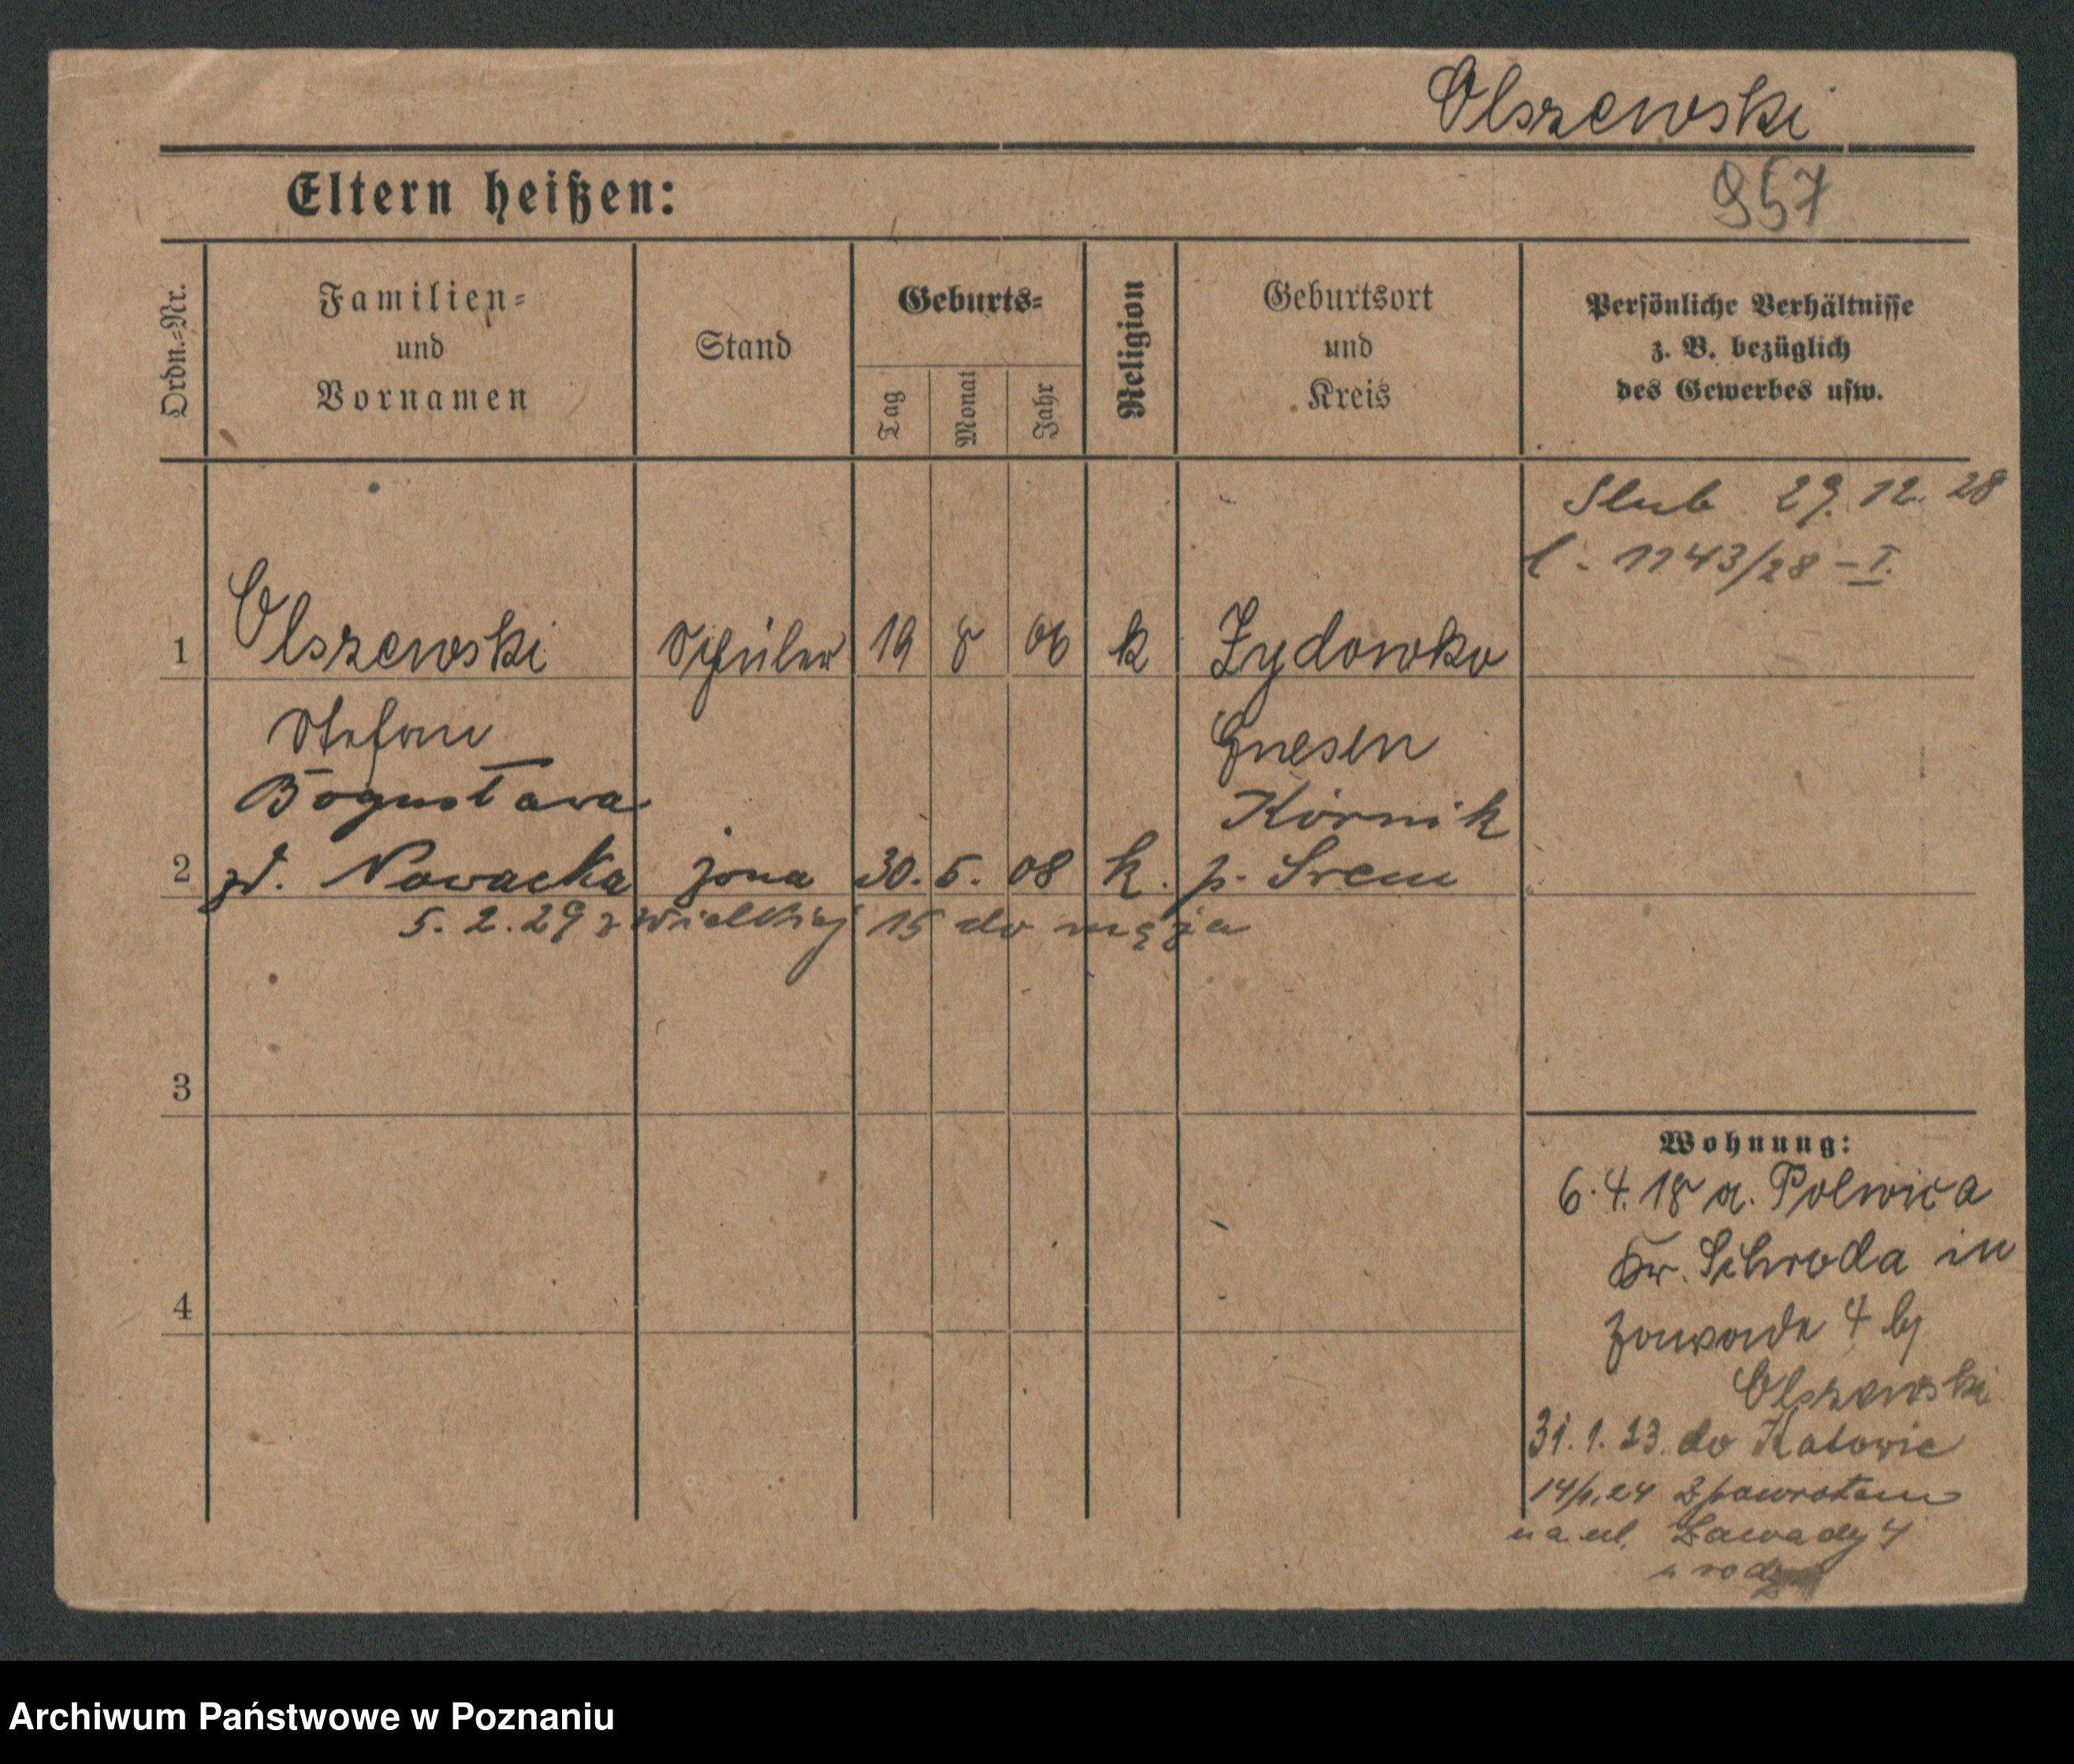 Olszewski
Eltern heißen:
957
Ordn.=Nr.
Familien=
und
Vornamen
Stand
Geburts=
Tag
Monat
Jahr
Religion
Geburtsort
und
Kreis
Persönliche Verhältnisse
z. B. bezüglich
des Gewerbes usw.
Slub 29. 12. 28
l. 1143/28 – I.
1 Olszewski Schüler 19 8 06 k Zydowko
Stefan Gnesen
Bogusława Kórnik
2 zd. Nowacka żona 30. 5. 08 k. p. Śrem
5. 2. 29 z Wielkiej 15 do męża
3
4
Wohnung:
6. 4. 18 a. Polwica
Kr. Schroda in
Zawade 4 by
Olszewski
31. 1. 23. do Katowic
14/1.24 z powrotem
na ul. Zawady 4
Archiwum Państwowe w Poznaniu